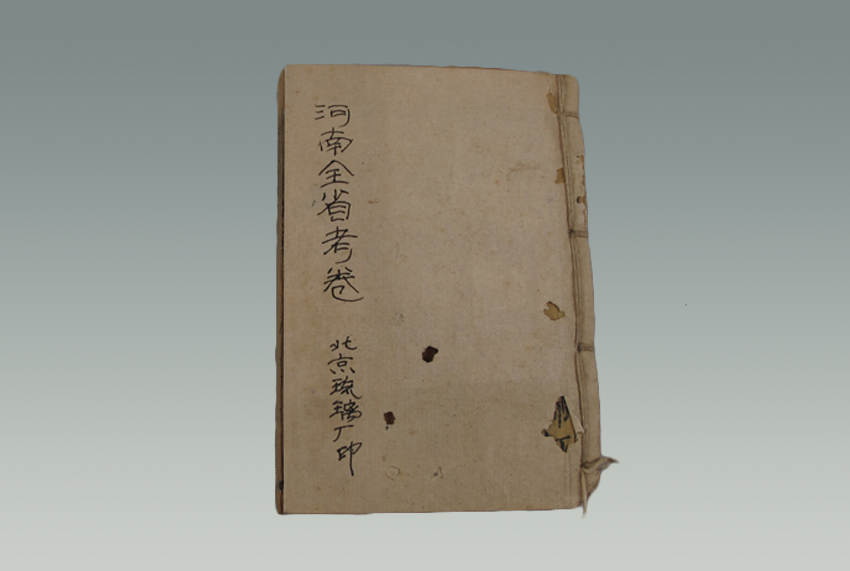 河南全省考卷
北京琉璃厂印